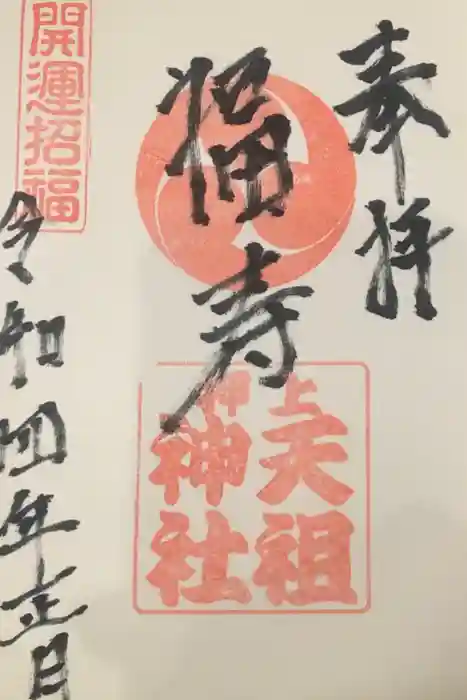 奉拝
福寿
押上
天祖
神社
開運招福
令和四年正日